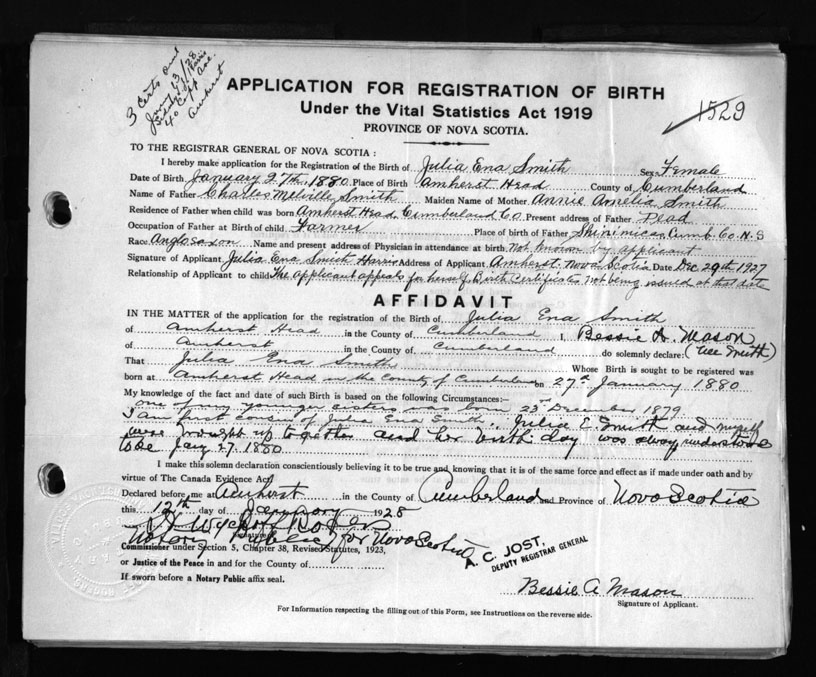 3 Certs and
Jany 13/28
40 Copp Ave.
Amherst
APPLICATION FOR REGISTRATION OF BIRTH
Under the Vital Statistics Act 1919
PROVINCE OF NOVA SCOTIA.
1529
TO THE REGISTRAR GENERAL OF NOVA SCOTIA :
I hereby make application for the Registration of the Birth of Julia Ena Smith Sex Female
Date of Birth January 27th, 1880 Place of Birth Amherst Head County of Cumberland
Name of Father Charles Melville Smith Maiden Name of Mother Annie Amelia Smith
Residence of Father when child was born Amherst Head, Cumberland Co Present address of Father Dead
Occupation of Father at Birth of child Farmer Place of birth of Father Shinimicas, Cumb. Co. N.S
Race Anglo saxon Name and present address of Physician in attendance at birth Not known by applicant
Signature of Applicant Julia Ena Smith Harris Address of Applicant Amherst, Nova Scotia, Date Dec 29th 1927
Relationship of Applicant to child The applicant appeals for herself, Birth Certificates not being issued at that date
AFFIDAVIT
IN THE MATTER of the application for the registration of the Birth of Julia Ena Smith
of Amherst Head in the County of Cumberland I, Bessie A. Mason
of Amherst in the County of Cumberland do solemnly declare: (nee Smith)
That Julia Ena Smith Whose Birth is sought to be registered was
born at Amherst Head in the County of Cumberland on 27th January 1880
My knowledge of the fact and date of such Birth is based on the following Circumstances:-
one of my younger sisters was born 23rd December 1879.
I am first cousin of Julia Ena Smith, Julia E. Smith and myself
were brought up together and her birthday was always understood
to be Jany 27. 1880
I make this solemn declaration conscientiously believing it to be true and knowing that it is of the same force and effect as if made under oath and by
virtue of The Canada Evidence Act
Declared before me at Amherst in the County of Cumberland and Province of Nova Scotia
this 12th day of January 1928
Notary Public for Nova Scotia
Commissioner under Section 5, Chapter 38, Revised Statutes, 1923,
or Justice of the Peace in and for the County of
If sworn before a Notary Public affix seal.
A. C. JOST,
DEPUTY REGISTRAR GENERAL
Bessie A Mason
Signature of Applicant.
For Information respecting the filling out of this Form, see Instructions on the reverse side.